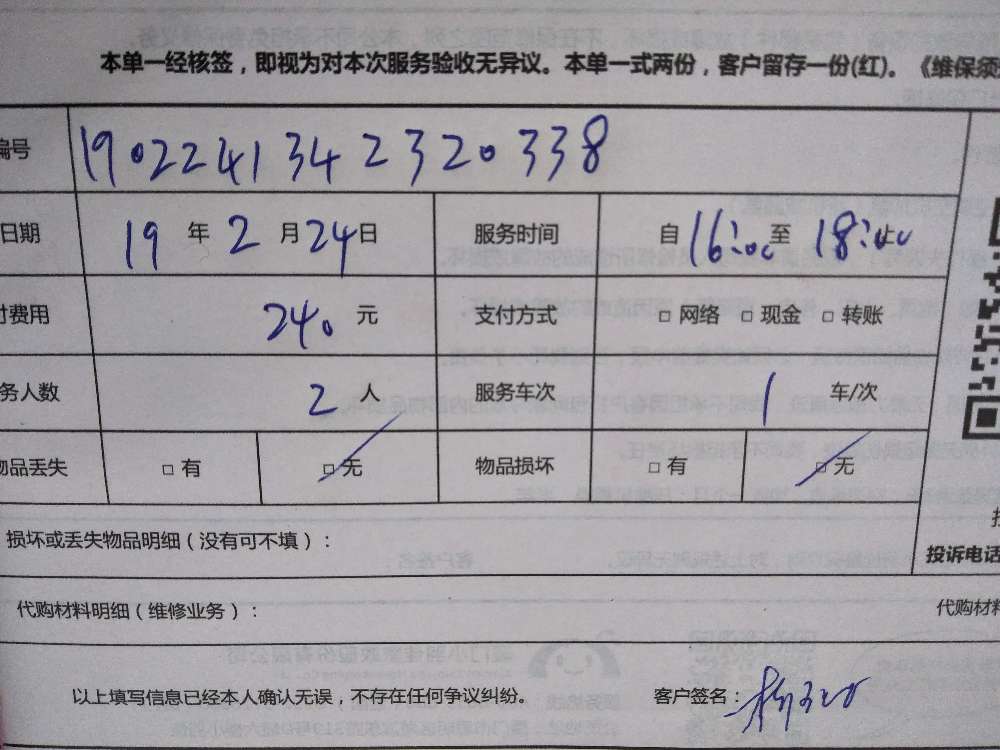 本单一经核签，即视为对本次服务验收无异议。本单一式两份，客户留存一份(红)。《维保须
编号 1902241342320338
日期 19 年 2 月 24 日 服务时间 自 16:00 至 18:00
付费用 240 元 支付方式 □ 网络 □ 现金 □ 转账
务人数 2 人 服务车次 1 车/次
物品丢失 □ 有 □ 无 物品损坏 □ 有 □ 无
损坏或丢失物品明细（没有可不填）：
投诉电话
代购材料明细（维修业务）： 代购材料
以上填写信息已经本人确认无误，不存在任何争议纠纷。 客户签名：